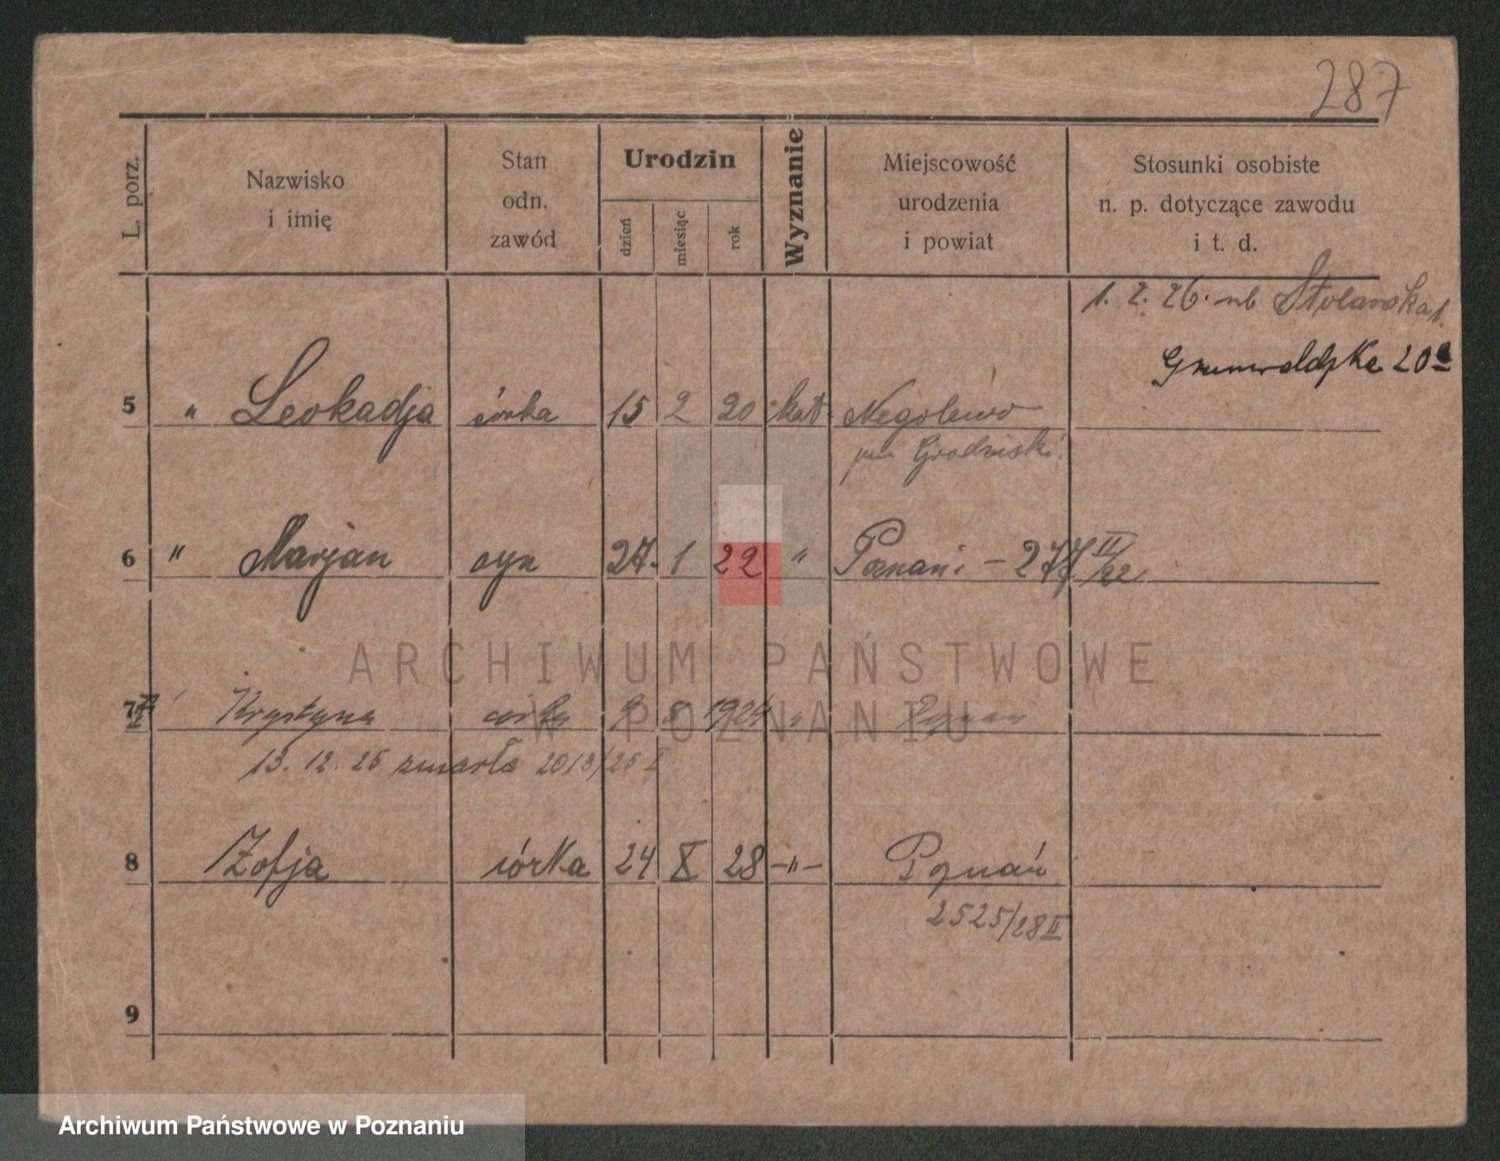 287
L. porz.
Nazwisko i imię
Stan odn. zawód
Urodzin
dzień miesiąc rok
Wyznanie
Miejscowość urodzenia i powiat
Stosunki osobiste n. p. dotyczące zawodu i t. d.
1. 2. 26. nb Stolarska 1.
Grunwaldzka 20a
5 " Leokadja córka 15 2 20 kat. Niegolewo
pow Grodziski
6 " Marjan syn 27. 1 22 " Poznań - 277 II/22
7 Krystyna córka 9 8 1924 " Poznań
13. 12. 25 zmarła 2013/25 I
8 Zofja córka 24 X 28 -"- Poznań
2525/28 II
9
ARCHIWUM PAŃSTWOWE
W POZNANIU
Archiwum Państwowe w Poznaniu